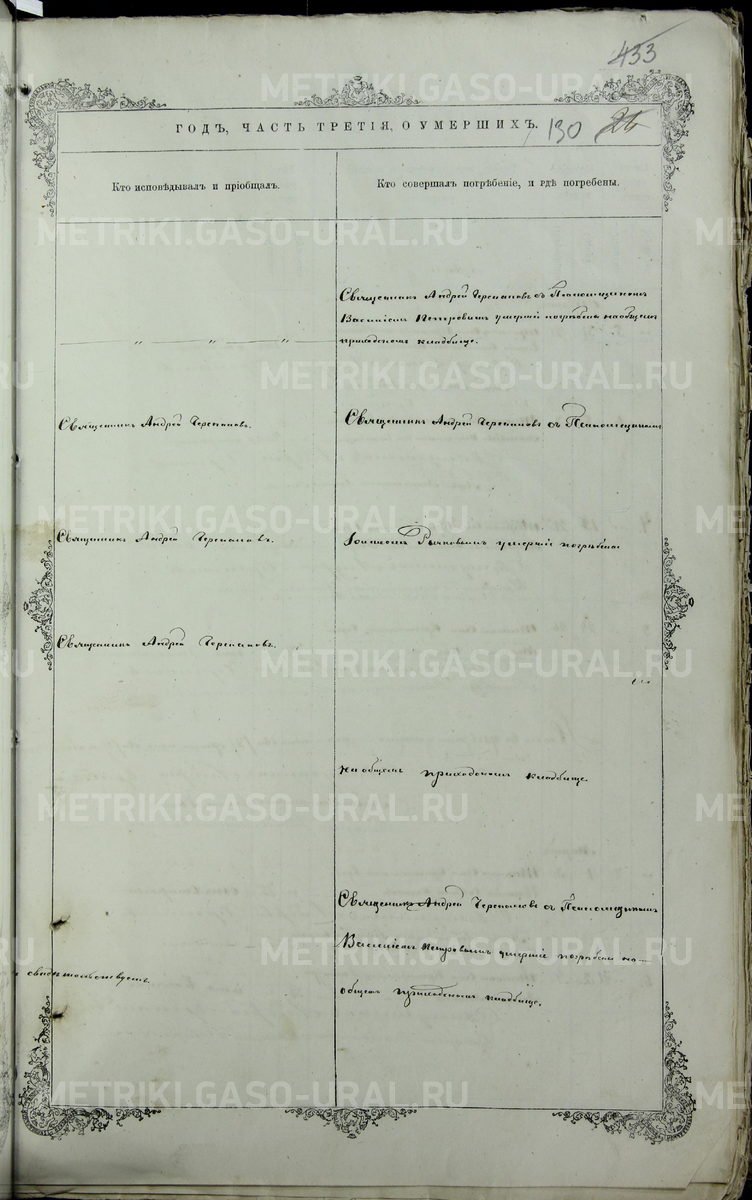 433
ГОДЪ, ЧАСТЬ ТРЕТІЯ, О УМЕРШИХЪ.
130
26
Кто исповѣдывалъ и пріобщалъ.
Кто совершалъ погрѣбеніе, и гдѣ погребены.
Священникъ Андрей Черепановъ съ Псаломщикомъ
Василіемъ Петровымъ умершій погребенъ на общемъ
приходскомъ кладбище.
— „ — „ — „ —
Священникъ Андрей Черепановъ.
Священникъ Андрей Черепановъ съ Псаломщикомъ
Священникъ Андрей Черепановъ.
Іоанномъ Рычковымъ умершіе погребены
Священникъ Андрей Черепановъ.
на общемъ приходскомъ кладбище.
Священникъ Андрей Черепановъ съ Псаломщикомъ
Василіемъ Петровымъ умершіе погребены на
свидѣтельствуетъ.
общемъ приходскомъ кладбище.
METRIKI.GASO-URAL.RU